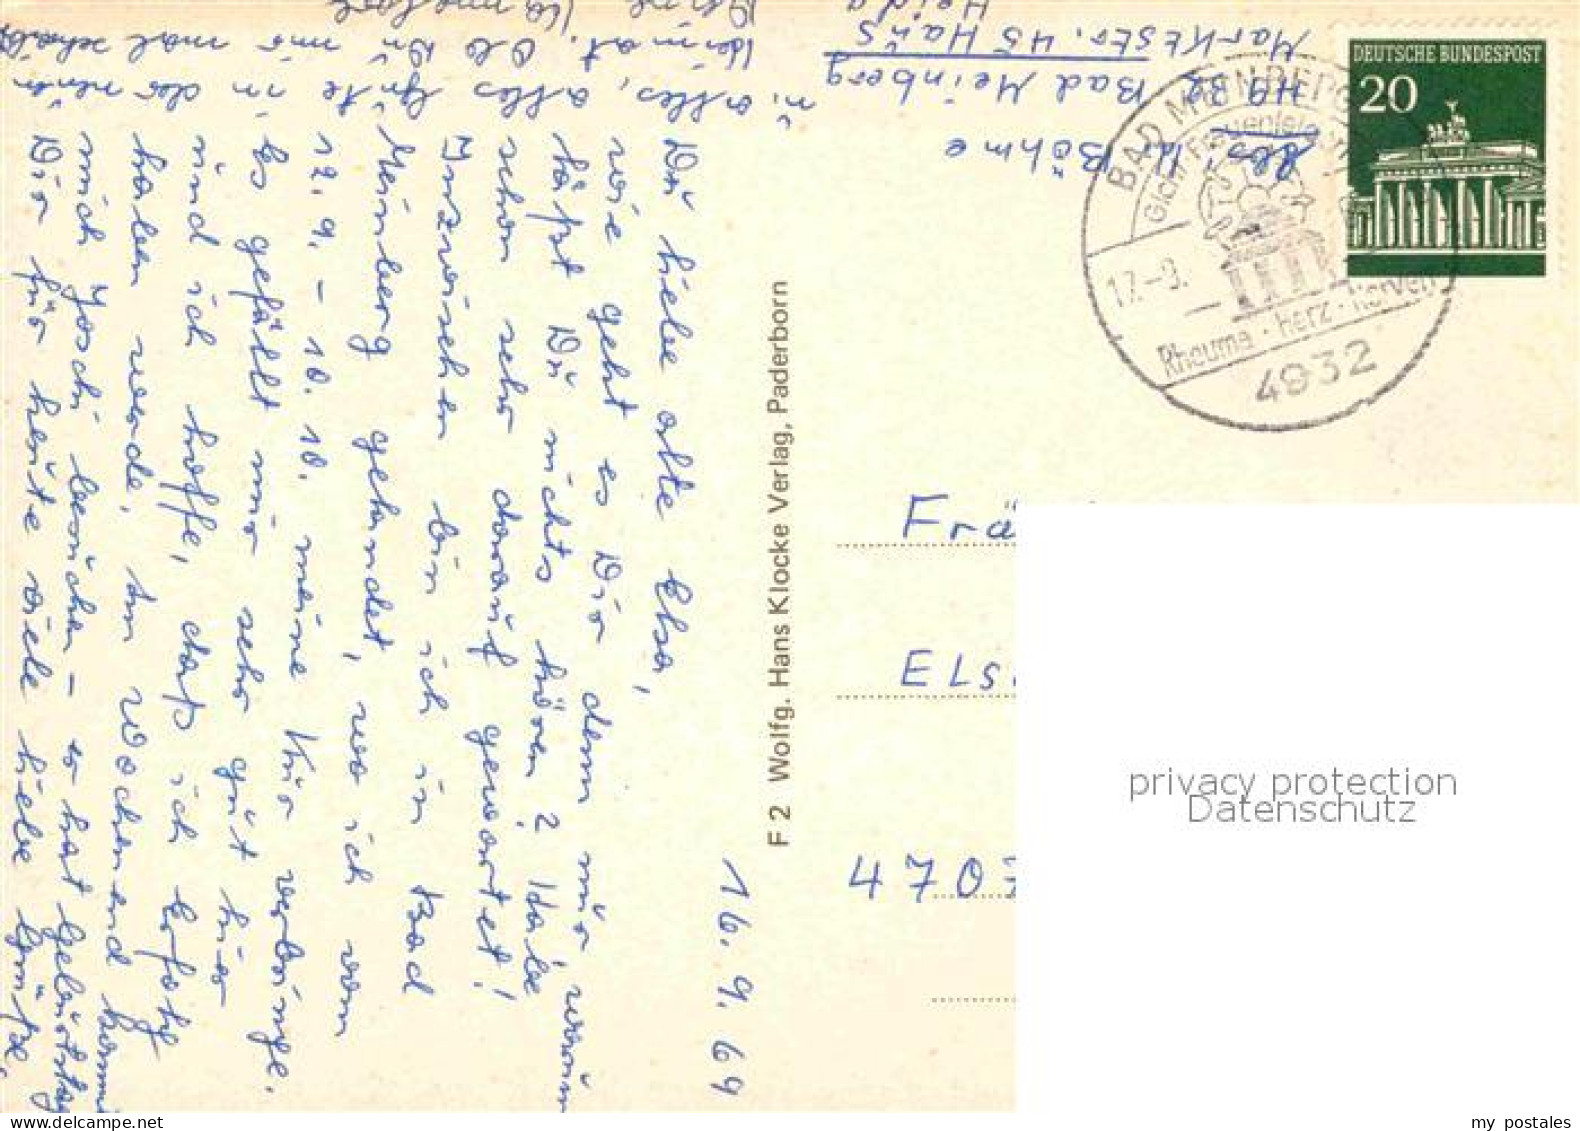 16. 9. 69
Du liebe alte Elsa,
wie geht es Dir denn nur, warum
läßt Du nichts hören? Habe
schon sehr darauf gewartet!
Inzwischen bin ich in Bad
Meinberg gelandet, wo ich vom
12. 9. – 10. 10. meine Kur verbringe.
Es gefällt mir sehr gut hier
und ich hoffe, daß ich Erfolg
haben werde. Am Wochenend kommt
mich Joschi besuchen – er hat Geburtstag
Dir für heute viele liebe Grüße,
alles, alles Gute in der neuen
Heimat. Ob Du mir mal schreibst
Deine
F 2 Wolfg. Hans Klocke Verlag, Paderborn
Abs. Böhme
49 Bad Meinberg
Marktstr. 45 Haus
Heida
DEUTSCHE BUNDESPOST
20
BAD MEINBERG
Gicht Frauenleiden
17.-9.
Rheuma · Herz · Nerven
4932
Frä
Els
4707
privacy protection
Datenschutz
my postales